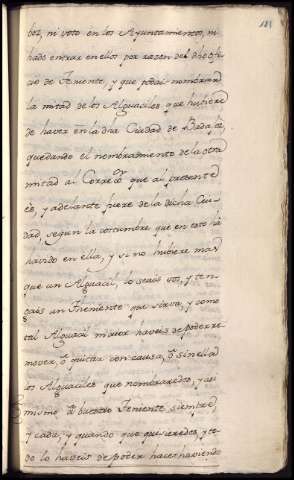 181
boz, ni voto en los Ayuntamientos, ni
ha de entrar en ellos por razon del dho ofi-
cio de Teniente, y que podais nombrar
la mitad de los Alguaciles que hubiere
de haver en la dha Ciudad de Badajoz,
quedando el nombramiento de la otra
mitad al Correxor. que al presente
es, y adelante fuere de la dicha Ciu-
dad, segun la costumbre que en esto há
havido en ella, y si no hubiere mas
que un Alguacil, lo seais vos, y ten-
gais un Theniente que sirva, y como
tal Alguacil mayor haveis de poder re-
mover, ó quitar con causa, ó sin ella
los Alguaciles que nombraredes, y asi
mismo á buestro Teniente siempre,
y cada, y quando que quisieredes, y to-
do lo haveis de poder hacer haviendo